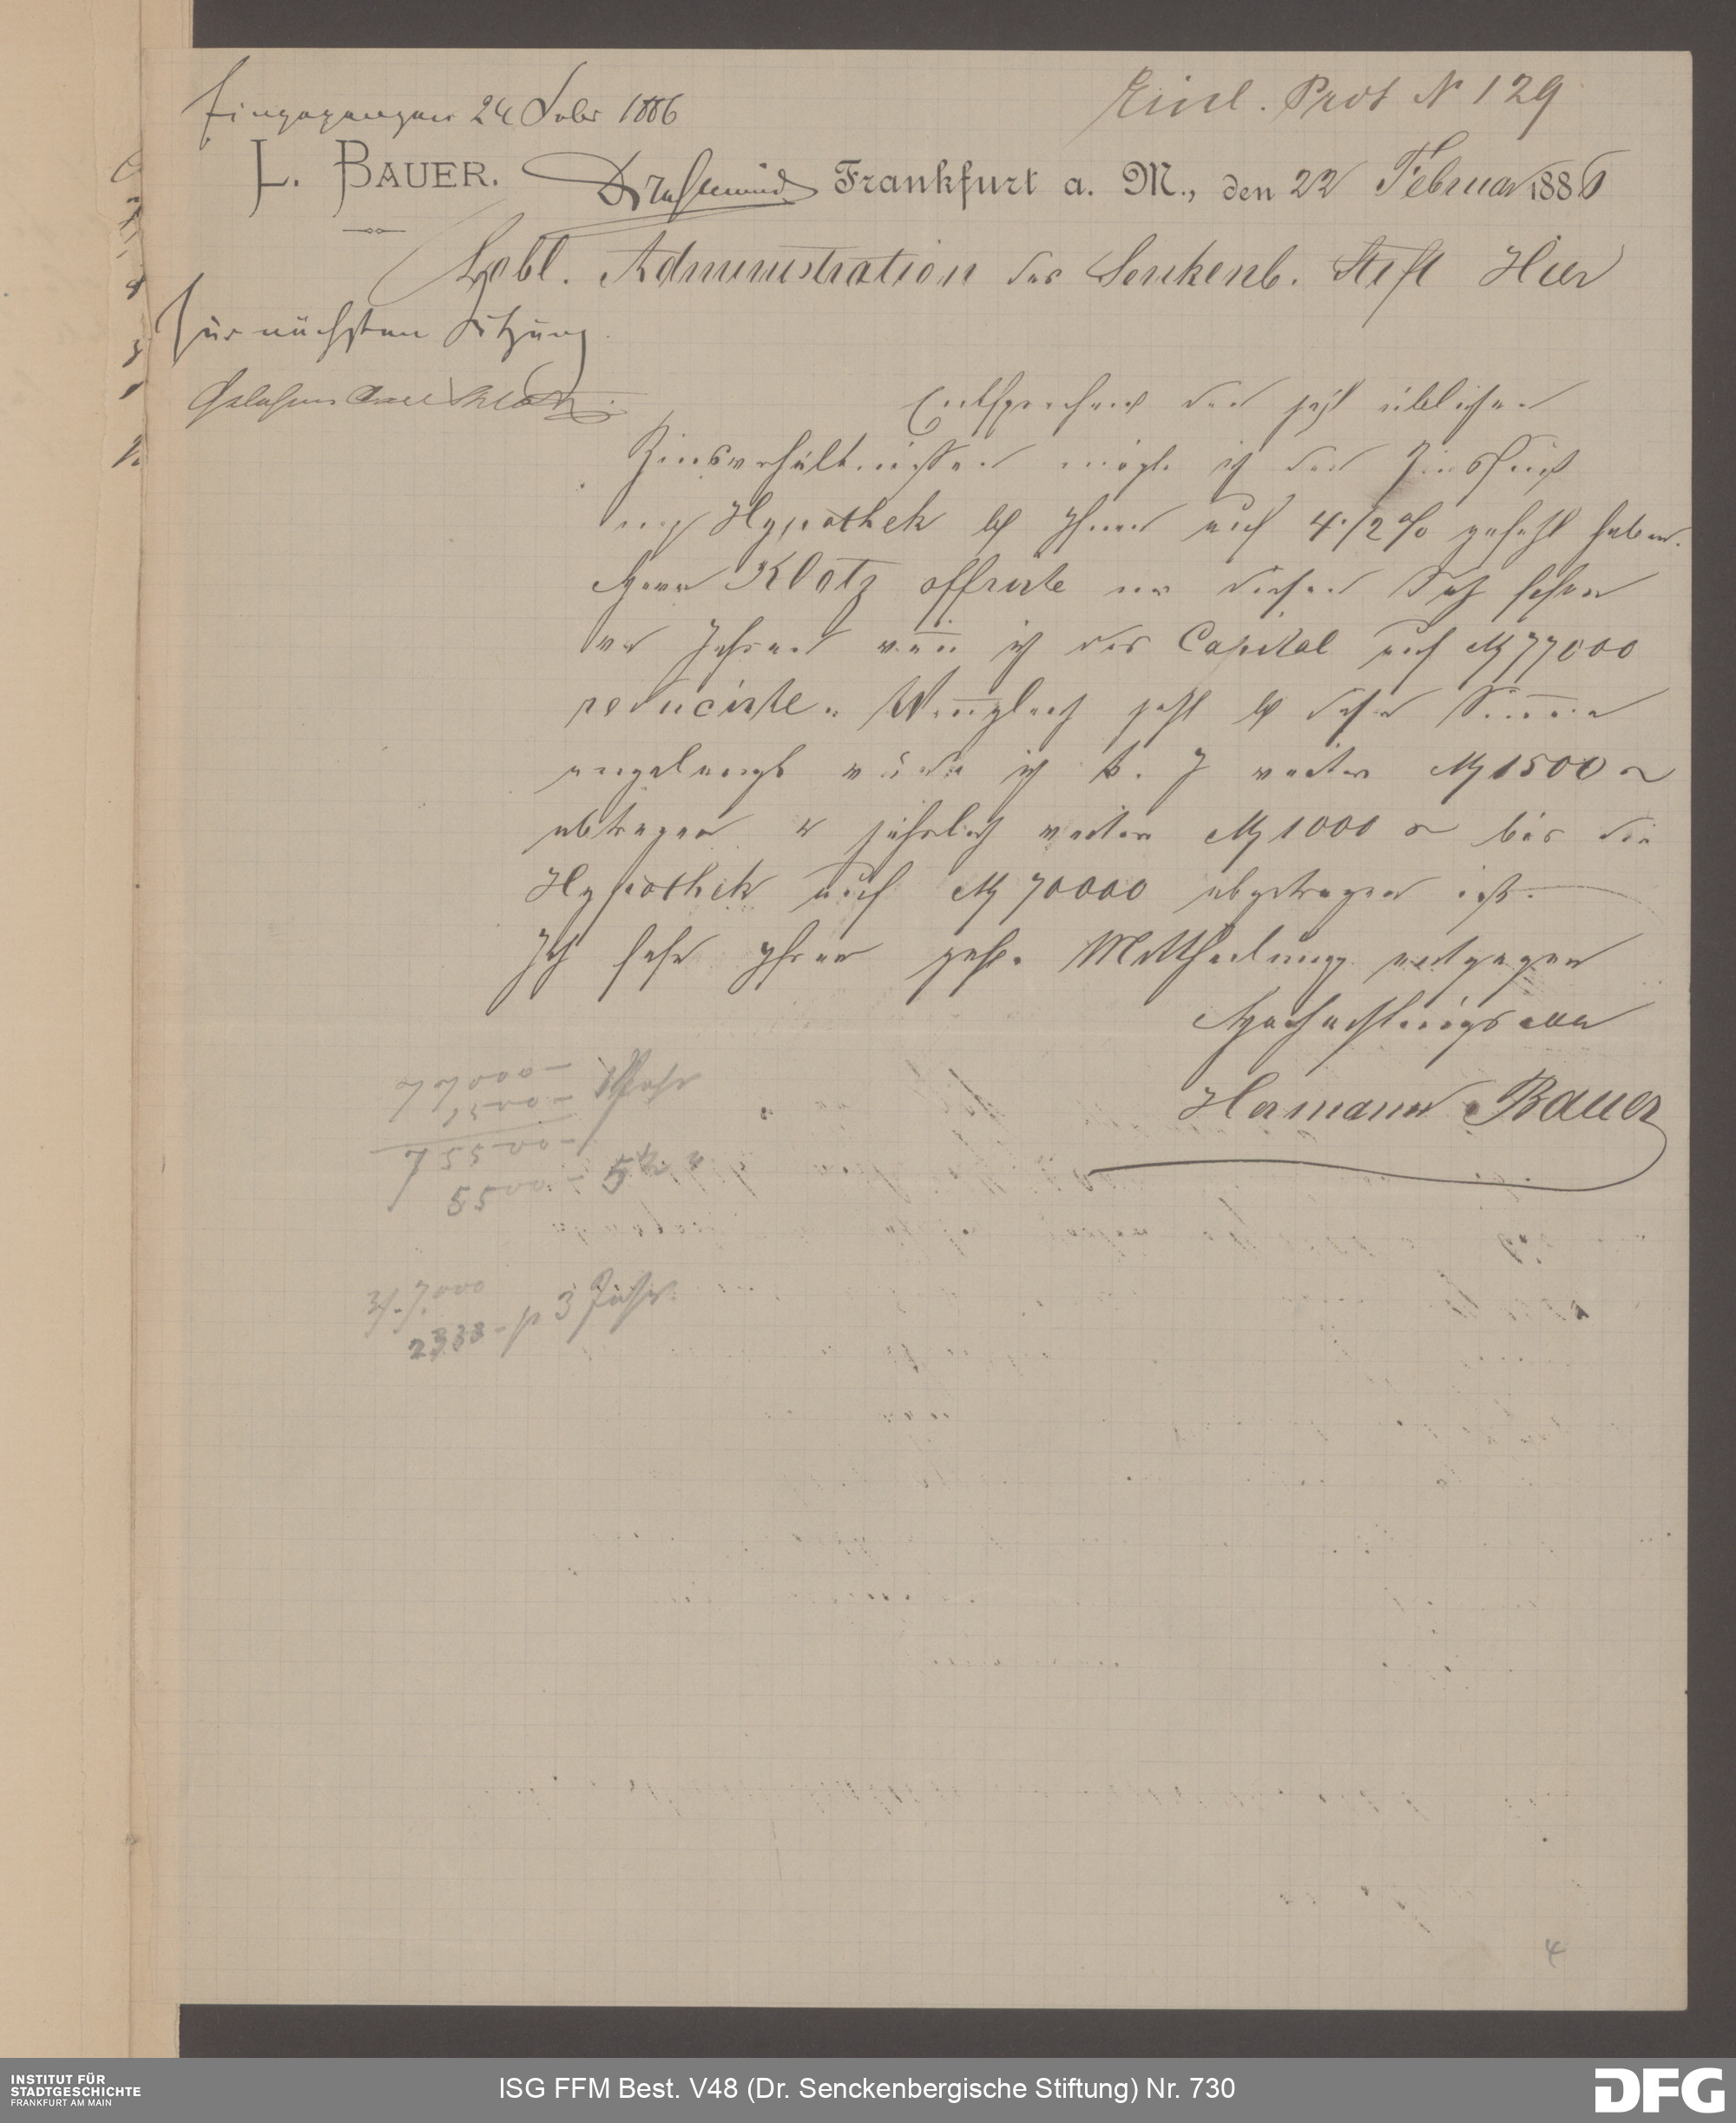 Eingegangen 24 Febr 1886
Einl. Prot N 129
L. BAUER.
Frankfurt a. M., den 22 Februar 1886
Löbl. Administration des Senkenb. Stift Hier
Für nächsten Sitzung
Gelesen Carl Klotz
Entsprechend den jetzt üblichen
Zinsverhältnissen möchte ich den Zinsfuß
Hypothek bei Ihnen auf 4 1/2 % gesetzt haben.
Herr Klotz offrirte mir diesen Satz schon
vor Jahren wen̅ ich das Capital auf M 77000
reducirte. Wen̅gleich jetzt bei dieser Sum̅e
angelangt würde ich d. J weitere M 1500
abtragen & jährlich weitere M 1000 bis die
Hypothek auf M 70000 abgetragen ist.
Ich sehe Ihrer gefl. Mittheilung entgegen
Hochachtungsvoll
Hermann Bauer
77000 —
1500 —
75500 —
5500 — 5
7000
2333 — p 3 Jahr
4
INSTITUT FÜR
STADTGESCHICHTE
FRANKFURT AM MAIN
ISG FFM Best. V48 (Dr. Senckenbergische Stiftung) Nr. 730
DFG